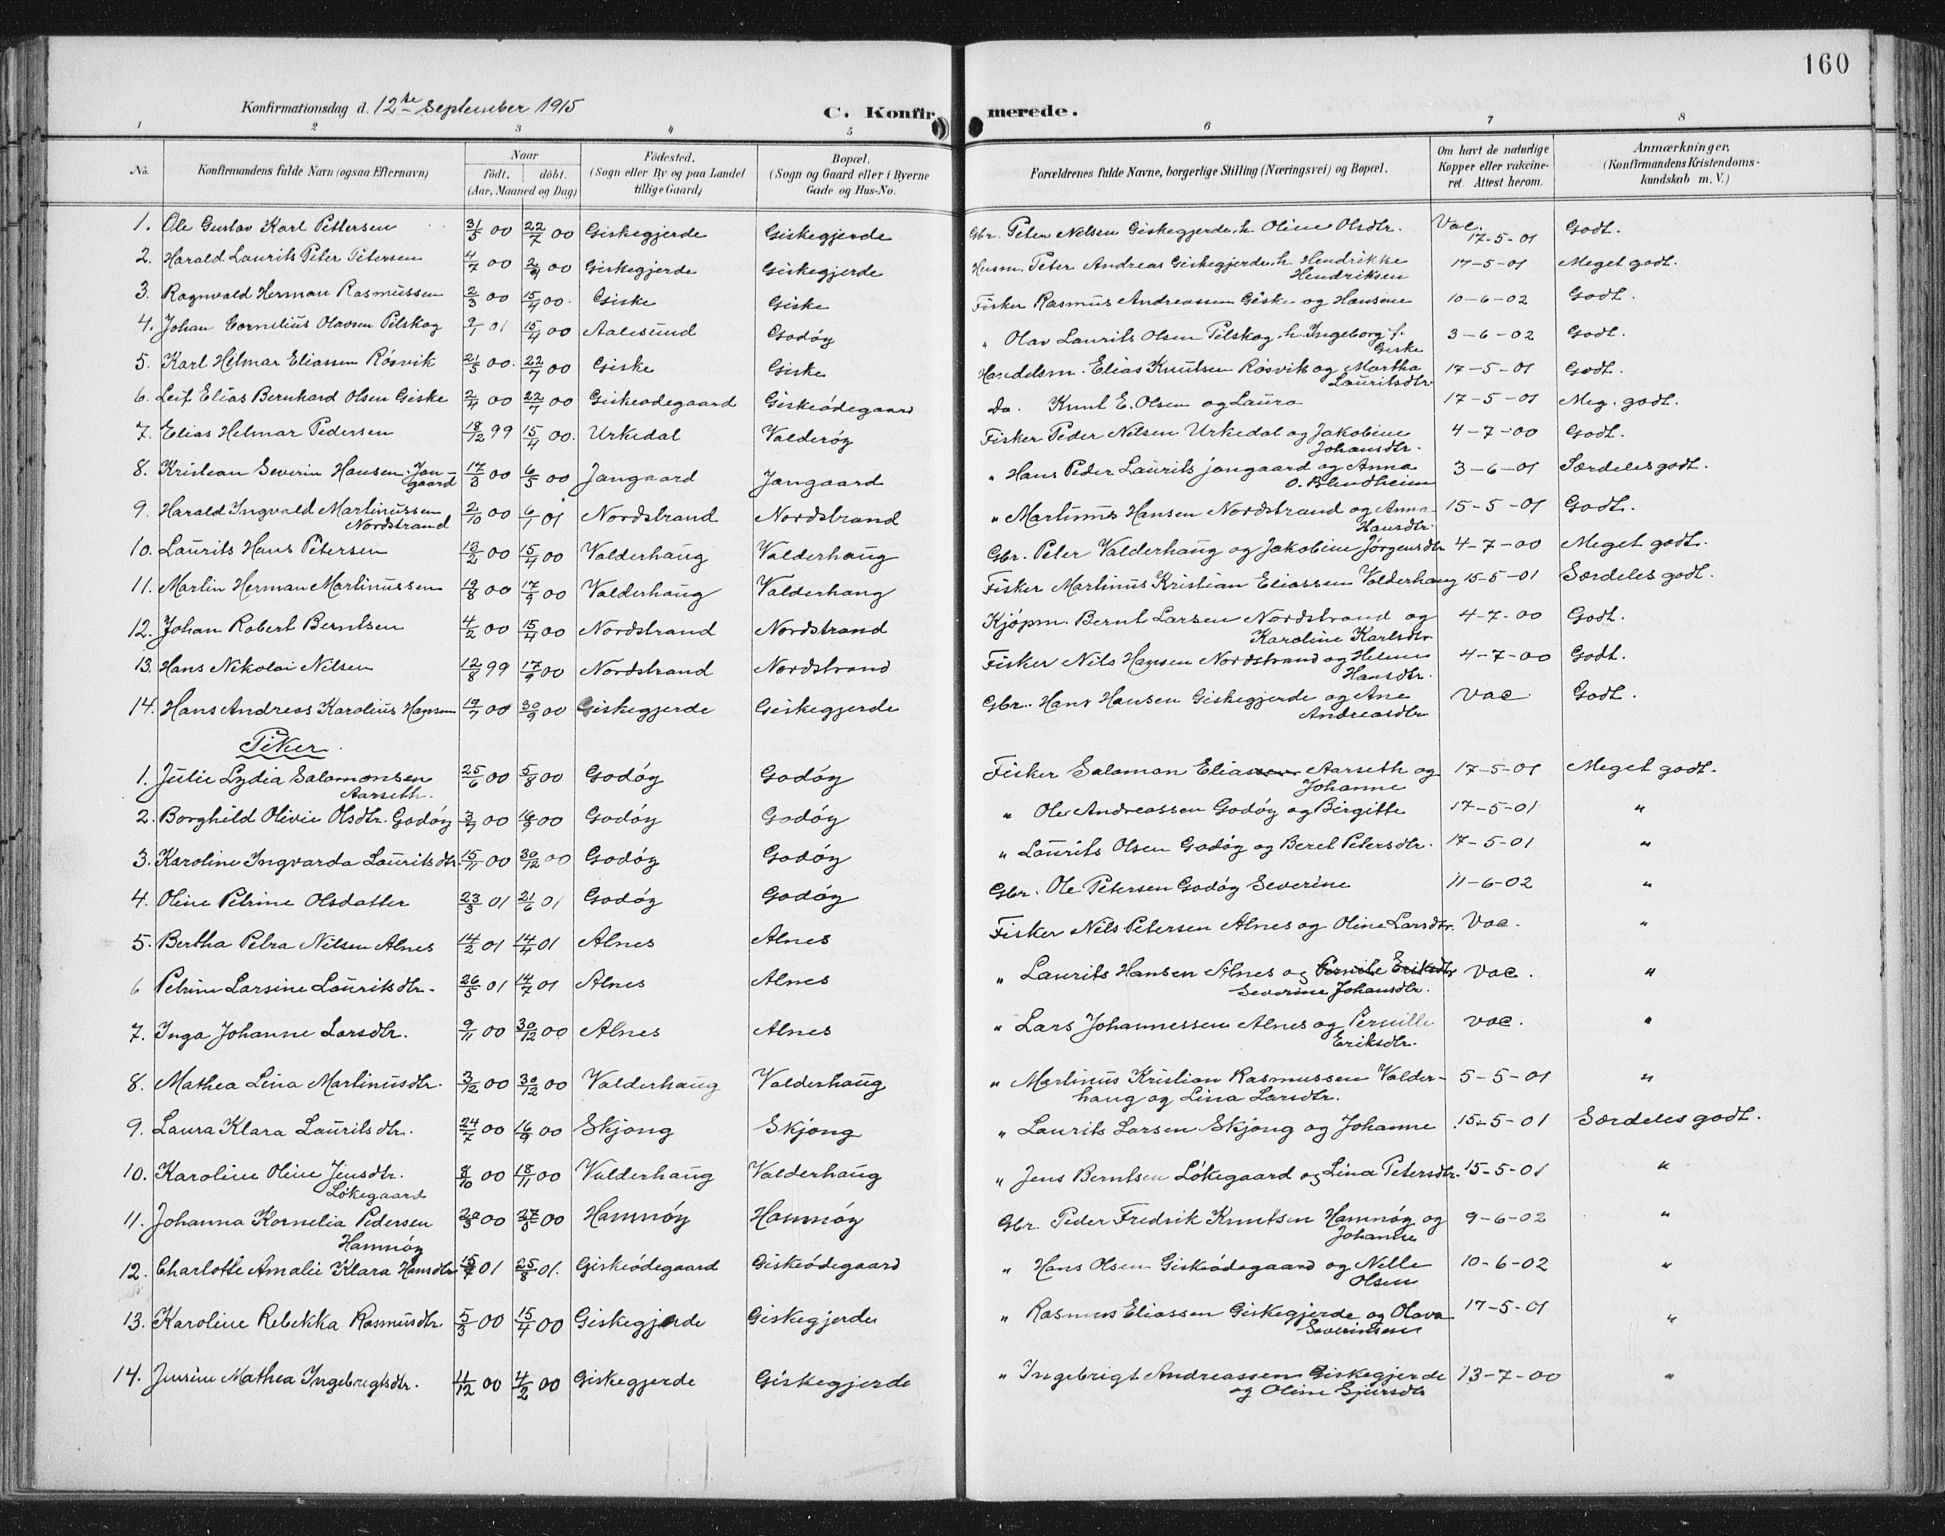 160
Konfirmationsdag d. 12te September 1915 C. Konfirmerede.
1 2 3 4 5 6 7 8
No. Konfirmandens fulde Navn (ogsaa Efternavn) Naar født. døbt. (Aar, Maaned og Dag) Fødested. (Sogn eller By og paa Landet tillige Gaard) Bopæl. (Sogn og Gaard eller i Byerne Gade og Hus-No. Forældrenes fulde Navne, borgerlige Stilling (Næringsvei) og Bopæl. Om havt de naturlige Kopper eller vakcineret. Attest herom. Anmærkninger, (Konfirmandens Kristendomskundskab m. V.)
1. Ole Gustav Karl Pettersen 31/5 00 22/7 00 Giskegjerde Giskegjerde Gbr. Peter Nelsen Giskegjerde, h. Oline Olsdtr. Vac. 17-5-01 Godt.
2. Harald Laurits Peter Petersen 4/7 00 2/9 00 Giskegjerde Giskegjerde Husm. Peter Andreas Giskegjerde, h. Hendrikke Hendriksen 17-5-01 Meget godt.
3. Ragnvald Herman Rasmussen 2/3 00 15/4 00. Giske Giske Fisker Rasmus Andreassen Giske og Hansine 10-6-02 Godt.
4. Johan Cornelius Olavsen Pilskog 9/1 01 15/4 00 Aalesund Godøy " Olav Laurits Olsen Pilskog, h. Ingeborg f. Giske 3-6-02 Godt.
5. Karl Helmar Eliassen Røsvik 21/5 00. 22/7 00 Giske Giske Handelsm. Elias Knutsen Røsvik og Martha Lauritsdtr 17-5-01 Godt.
6. Leif Elias Bernhard Olsen Giske 2/4 00 22/7 00 Giskeødegaard Giskeødegaard do. Knut E. Olsen og Laura 17-5-01 Meg. godt.
7. Elias Helmar Pedersen 18/12 99 15/4 00. Urkedal Valderøy Fisker Peder Nilsen Urkedal og Jakobine Johansdtr. 4-7-00 Godt.
8. Kristian Severin Hansen Jangaard 17/3 00 6/5 00 Jangaard Jangaard " Hans Peder Laurits Jangaard og Anna O. Blindheim 3-6-01 Særdeles godt.
9. Harald Ingvald Martinussen Nordstrand 2/10 00 6/1 01 Nordstrand Nordstrand " Martinus Hansen Nordstrand og Anna Hansdtr. 15-5-01 Godt.
10. Laurits Hans Petersen 12/2 00 15/4 00 Valderhaug Valderhaug Gbr. Peter Valderhaug og Jakobine Jørgensdtr 4-7-00 Meget godt.
11. Martin Herman Martinussen 19/8 00 17/9 00 Valderhaug Valderhaug Fisker Martinus Kristian Eliassen Valderhaug 15-5-01 Særdeles godt.
12. Johan Robert Berntsen 4/2 00 15/4 00 Nordstrand Nordstrand Kjøpm. Bernt Larsen Nordstrand og Karoline Karlsdtr 4-7-00 Godt.
13. Hans Nikolai Nilsen 12/8 99 17/9 00 Nordstrand Nordstrand Fisker Nils Hansen Nordstrand og Helene Hansdtr. 4-7-00 Godt.
14. Hans Andreas Karolius Hansen 19/7 00 30/9 00 Giskegjerde Giskegjerde Gbr. Hans Hansen Giskegjerde og Ane Andreasdtr Vac Godt.
Piker.
1. Julie Lydia Salamonsen Aarseth. 25/6 00 5/8 00 Godøy Godøy Fisker Salamon Eliassen Aarseth og Johanne 17-5-01 Meget godt.
2. Borghild Olivie Olsdtr. Godøy 3/7 00 16/9 00 Godøy Godøy " Ole Andreassen Godøy og Birgitte 17-5-01 "
3. Karoline Ingvarda Lauritsdtr. 15/11 00 30/12 00 Godøy Godøy " Laurits Olsen Godøy og Beret Petersdtr. 17-5-01 "
4. Oline Petrine Olsdatter 23/3 01 21/6 01 Godøy Godøy Gbr. Ole Petersen Godøy Severine 11-6-02 "
5. Bertha Petra Nilsen Alnes 14/2 01 14/4 01 Alnes Alnes Fisker Nils Petersen Alnes og Oline Larsdtr. Vac. "
6 Petrine Larsine Lauritsdtr. 26/5 01 14/7 01 Alnes Alnes " Laurits Hansen Alnes og Pernille Eriksdtr Severine Johansdtr. Vac. "
7. Inga Johanne Larsdtr. 9/11 00 30/12 00 Alnes Alnes " Lars Johannessen Alnes og Pernille Eriksdtr. Vac. "
8. Mathea Lina Martinusdtr. 3/12 00 30/12 00 Valderhaug Valderhaug " Martinus Kristian Rasmussen Valderhaug og Lina Larsdtr. 5-5-01 "
9. Laura Klara Lauritsdtr. 24/7 00 16/9 00 Skjong Skjong " Laurits Larsen Skjong og Johanne 15-5-01 Særdeles godt.
10. Karoline Oline Jensdtr. Løkegaard 8/10 00 18/11 00 Valderhaug Valderhaug " Jens Berntsen Løkegaard og Lina Petersdtr. 15-5-01 "
11. Johanna Kornelia Pedersen Hamnøy 20/3 00 27/5 00 Hamnøy Hamnøy Gbr. Peder Fredrik Knutsen Hamnøy og Johanne 9-6-02 "
12. Charlotte Amalie Klara Hansdtr 15/7 01 25/8 01. Giskeødegaard Giskeødegaard " Hans Olsen Giskeødegaard og Nelle Olsen 10-6-02 "
13. Karoline Rebekka Rasmusdtr. 5/3 00 15/4 00 Giskegjerde Giskegjerde " Rasmus Eliassen Giskegjerde og Olava Severinsen 17-5-01 "
14. Jensine Mathea Ingebrigtsdtr. 11/12 00 4/2 00 Giskegjerde Giskegjerde " Ingebrigt Andreassen Giskegjerde og Oline Sjursdtr 13-7-00 "